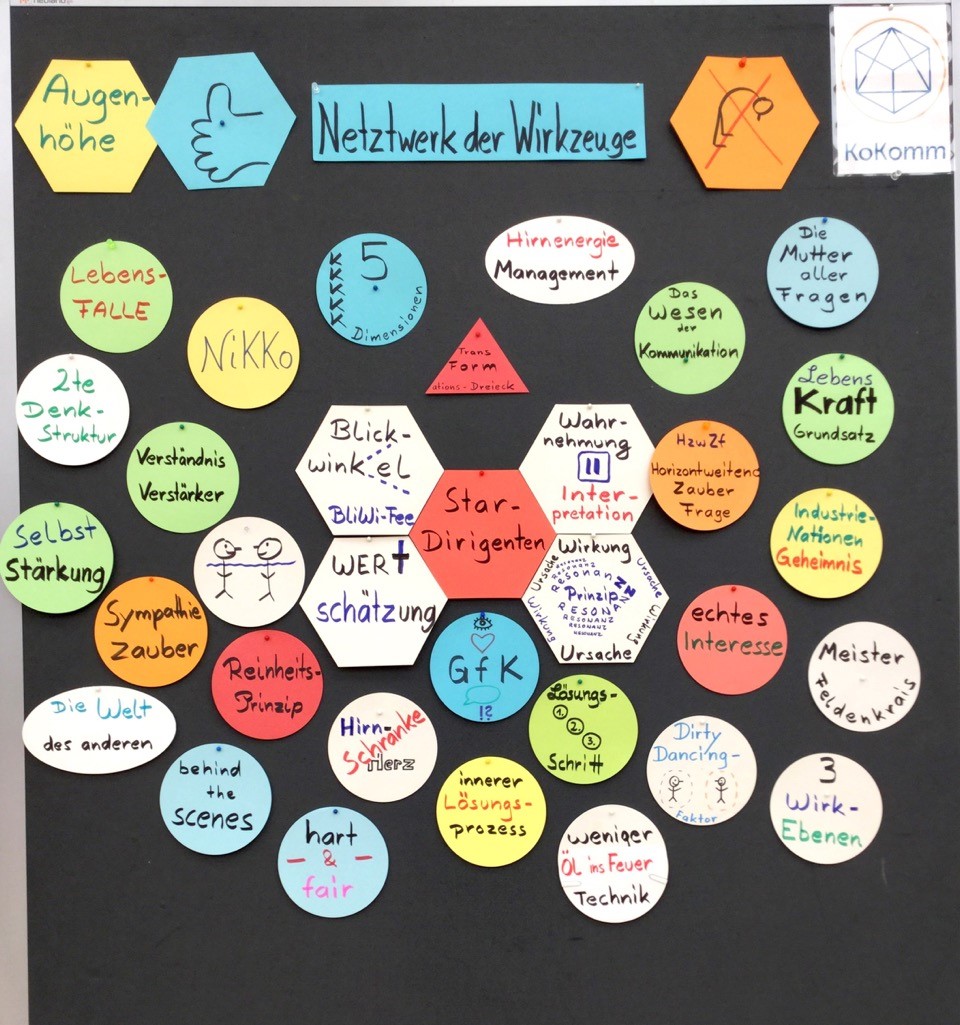 Augen-
höhe
Netztwerk der Wirkzeuge
KoKomm
Lebens-
FALLE
NiKKo
5
Dimensionen
Hirnenergie
Management
Die
Mutter
aller
Fragen
Das
Wesen
der
Kommunikation
Trans
Form
ations-Dreieck
2te
Denk-
Struktur
Verständnis
Verstärker
Blick-
winkel
BliWi-Fee
Wahr-
nehmung
Inter-
pretation
HzwZf
Horizontweitend
Zauber
Frage
Lebens
Kraft
Grundsatz
Selbst
Stärkung
Star-
Dirigenten
Industrie-
Nationen
Geheimnis
WERt
schätzung
Wirkung
Ursache
Ursache
Resonanz
RESONANZ
Prinzip
RESONANZ
RESONANZ
RESONANZ
RESONANZ
Wirkung
Wirkung
Ursache
Sympathie
Zauber
Reinheits-
Prinzip
GfK
!?
echtes
Interesse
Meister
Feldenkrais
Die Welt
des anderen
Hirn-
Schranke
Herz
Lösungs-
1.
2.
3.
Schritt
Dirty
Dancing-
Faktor
3
Wirk-
Ebenen
behind
the
scenes
innerer
Lösungs-
prozess
hart
&
fair
weniger
Öl ins Feuer
Technik